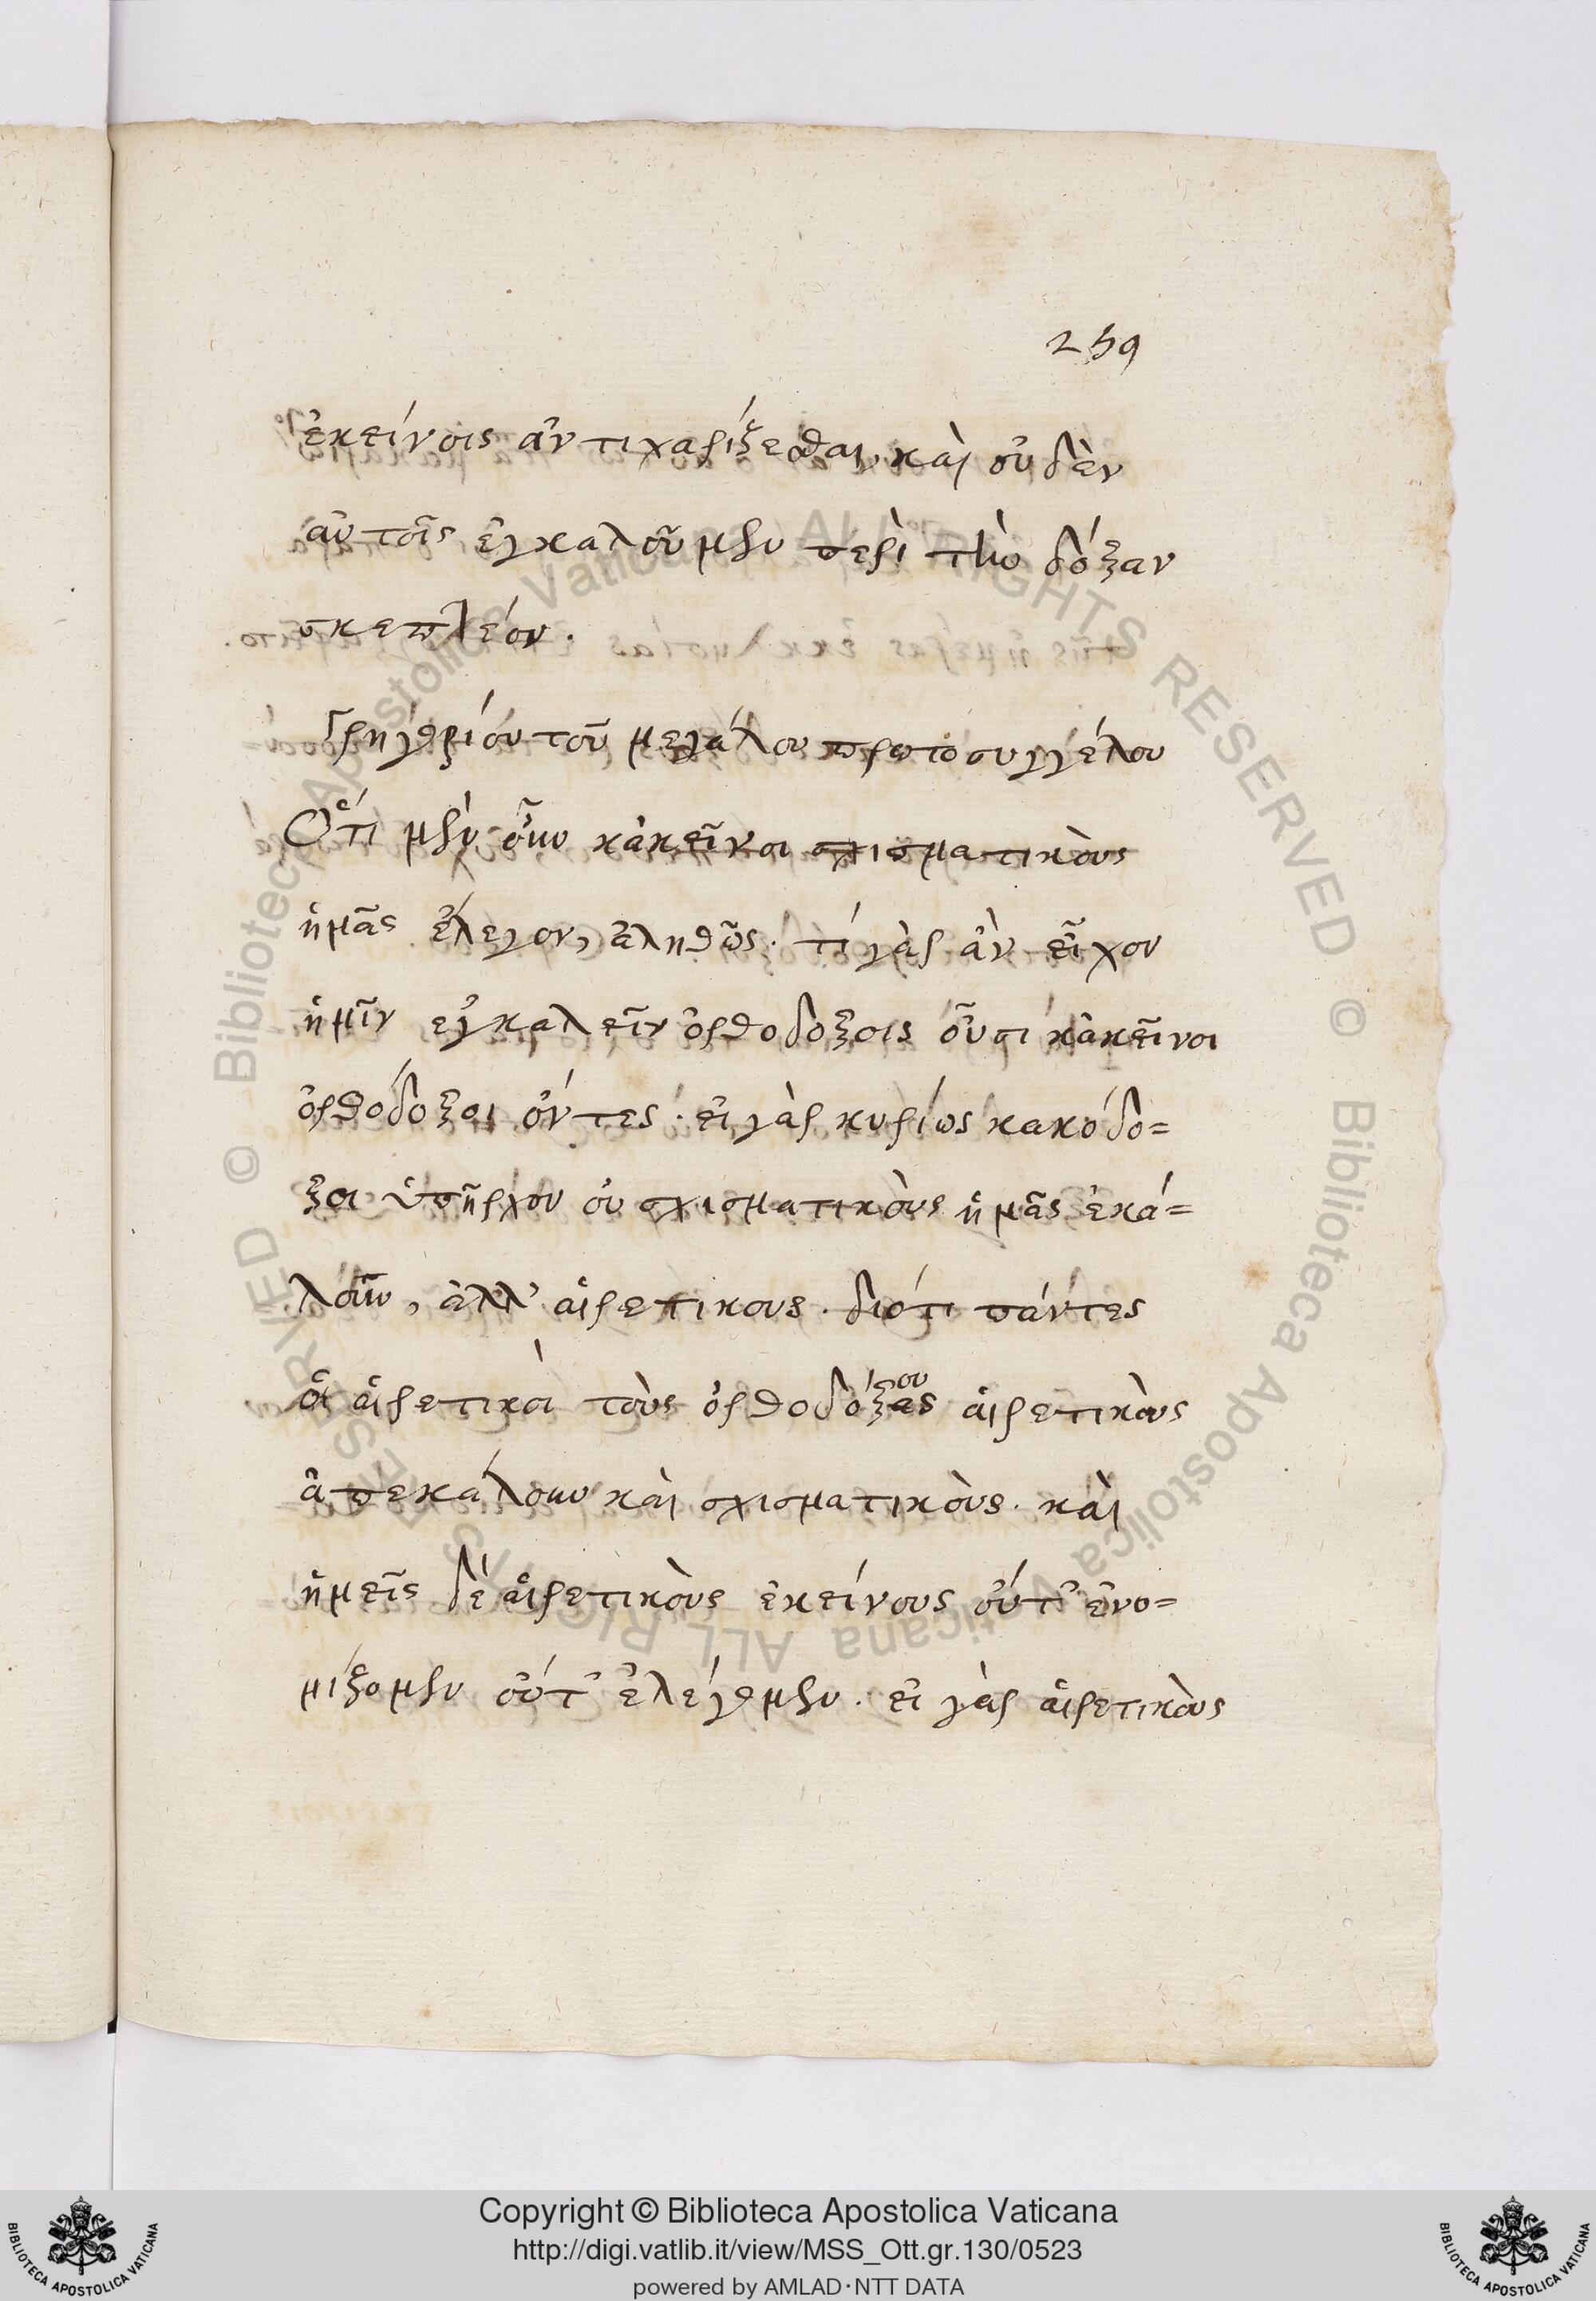 259
ἐκείνοις ἀντιχαρίζεσθαι, καὶ οὐδὲν
αὐτοῖς ἐγκαλοῦμεν περὶ τὴν δόξαν
σκεπλέον.
Γρηγορίου τοῦ μεγάλου πρωτοσυγγέλου
Ὅτι μὲν οὖν κἀκεῖνοι σχισματικοὺς
ἡμᾶς ἔλεγον, ἀληθῶς. τί γὰρ ἂν εἶχον
ἡμῖν ἐγκαλεῖν ὀρθοδόξοις οὖσι κἀκεῖνοι
ὀρθόδοξοι ὄντες. εἰ γὰρ κυρίως κακόδο=
ξοι ὑπῆρχον οὐ σχισματικοὺς ἡμᾶς ἐκά=
λουν, ἀλλ' αἱρετικους. διότι πάντες
οἱ αἱρετικοὶ τοὺς ὀρθοδόξους αἱρετικοὺς
ἀπεκάλουν καὶ σχισματικοὺς. καὶ
ἡμεῖς δὲ αἱρετικοὺς ἐκείνους οὔτ' ἐνο=
μίζομεν οὔτ' ἐλέγομεν. εἰ γὰρ αἱρετικοὺς
© Biblioteca Apostolica Vaticana ALL RIGHTS RESERVED
© Biblioteca Apostolica Vaticana ALL RIGHTS RESERVED
Copyright © Biblioteca Apostolica Vaticana
http://digi.vatlib.it/view/MSS_Ott.gr.130/0523
powered by AMLAD·NTT DATA
BIBLIOTECA APOSTOLICA VATICANA
BIBLIOTECA APOSTOLICA VATICANA